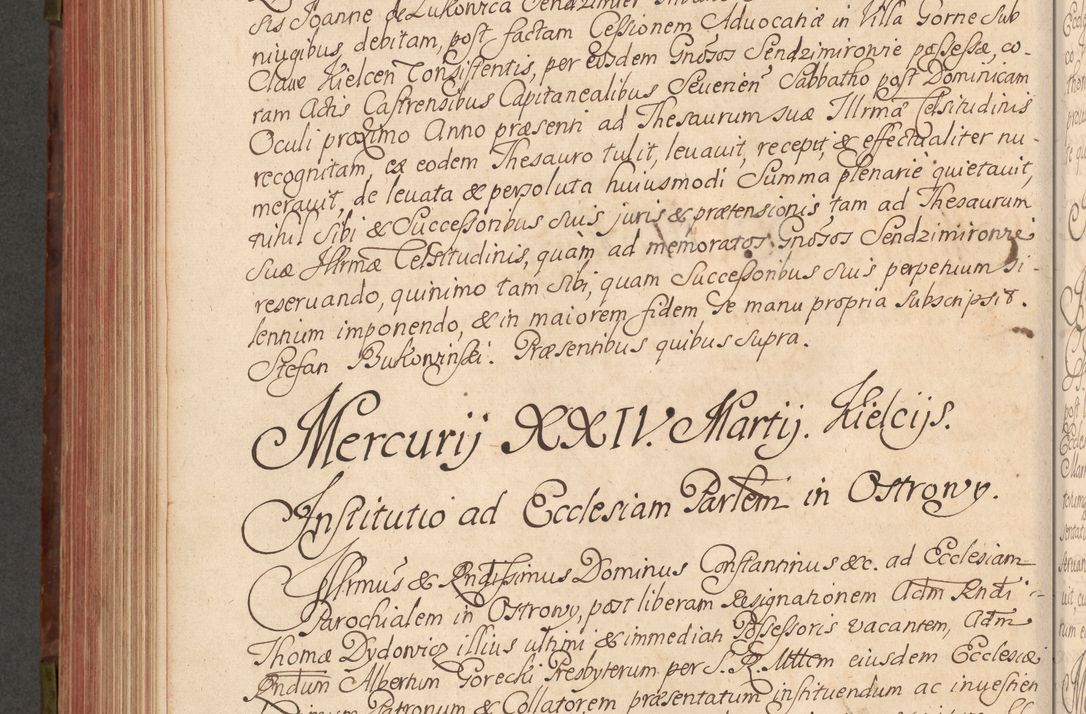 sis Joanne de Lukowica Sendzimier
niugibus, debitam, post factam Cessionem Advocatiæ in Villa Gorne Sub
Clave Kielcen Consistentis, per eosdem Gnosos Sendzimirowie possessæ, co-
ram Actis Castrensibus Capitanealibus Severien Sabbatho post Dominicam
Oculi proximo Anno præsenti ad Thesaurum suæ Illrmæ Celsitudinis
recognitam, ex eodem Thesauro tulit, levavit, recepit, & effectualiter nu-
meravit, de levata & persoluta huiusmodi Summa plenarie quietavit,
nihil Sibi & Successoribus suis juris & prætensionis tam ad Thesaurum
Suæ Illrmæ Celsitudinis, quam ad memoratos Gnosos Sendzimirowie
reservando, quinimo tam Sibi, quam Successoribus suis perpetuum si-
lennium imponendo, & in maiorem fidem Se manu propria Subscripsit.
Stefan Bukowiński. Præsentibus quibus supra.
Mercurij XXIV. Martij. Kielcijs.
Institutio ad Ecclesiam Parlem in Ostrowy.
Illrmus & Rndissimus Dominus Constantinus &c. ad Ecclesiam
Parochialem in Ostrowy, post liberam Resignationem Adm Rndi
Thomæ Dydowicz illius ultimi & immediati Possessoris vacantem, Adm
Rndum Albertum Gorecki Presbyterum per S. R. Mttem eiusdem Ecclesiæ
Patronum & Collatorem præsentatum instituendum ac investien